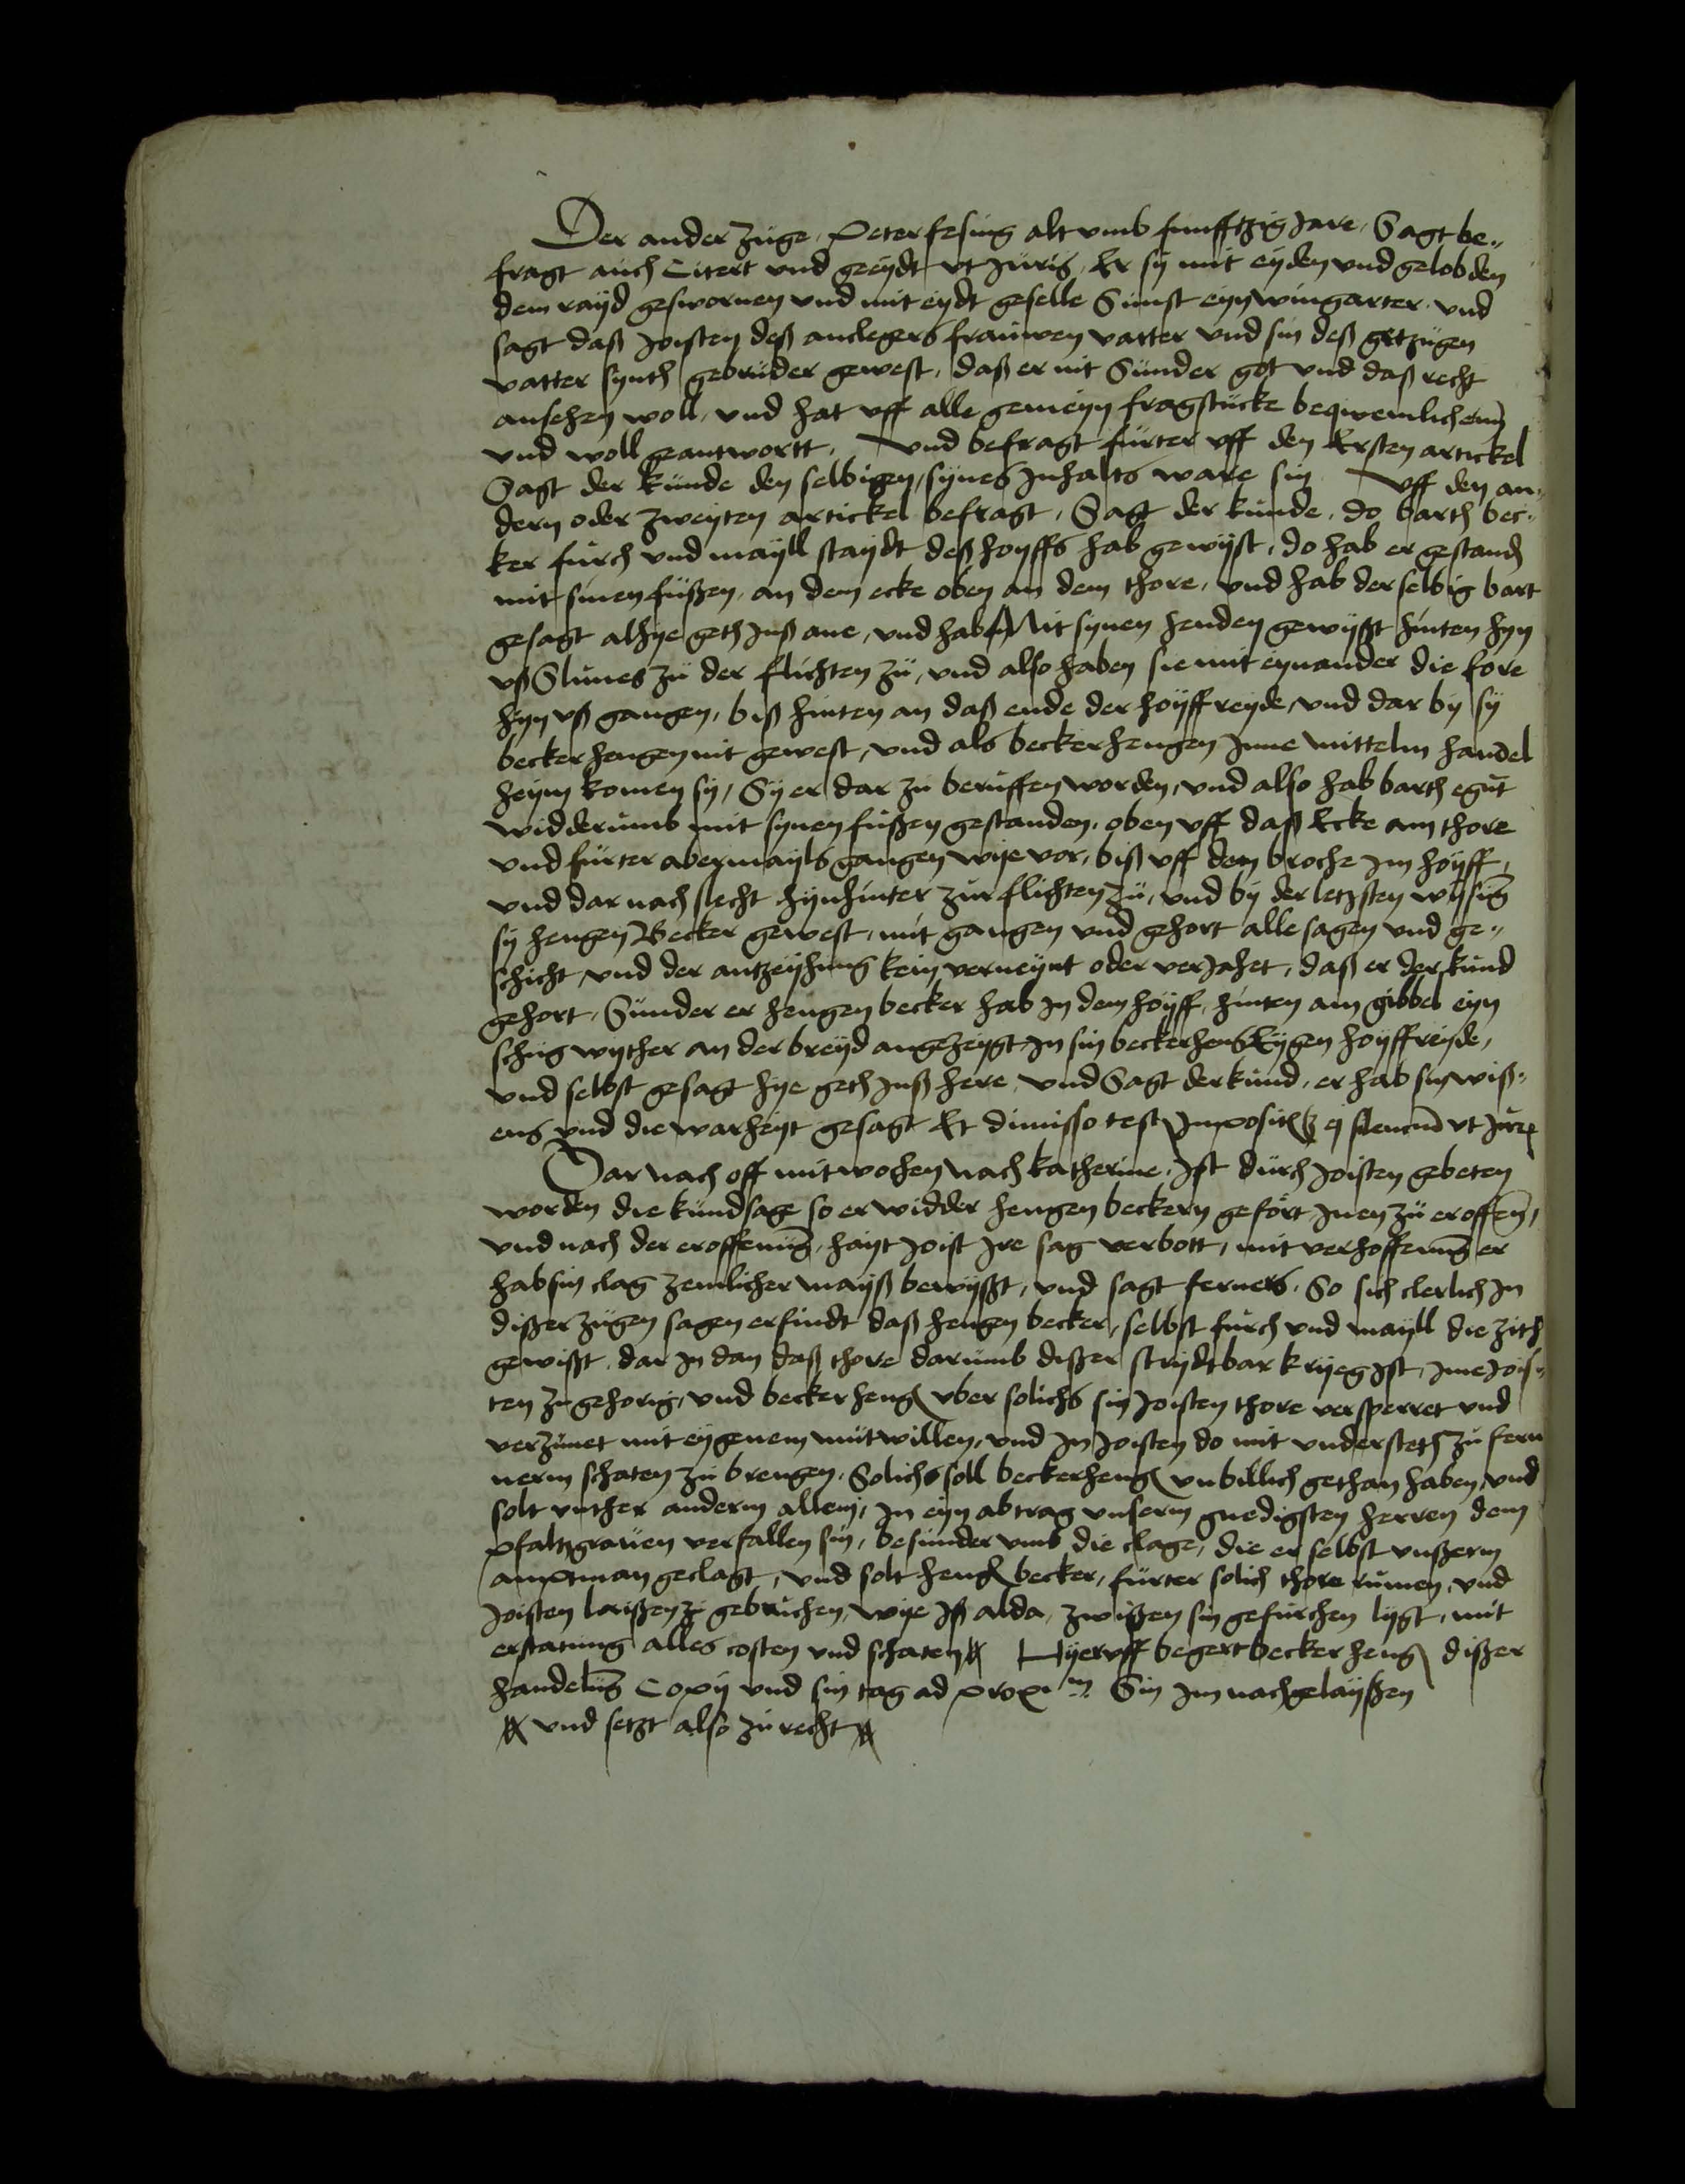 Der ander züge, Peter fesing alt vmb funfftzig Jare, Sagt be-
fragt auch Citert und geeydt vt Juris, Er sy mit eyden und gelobden
dem rayd gesworney und mit eydt geselle Sünst eyn wingarter und
sagt daß Joisten deß anclegers frauwen vatter und sin deß getzügen
vatter synth gebrüder gewest, daß er nit Sünder got und daß recht
ansehen woll, und hat uff alle gemeyn fragstücke beqwemlichenn
und woll geantwortt, Und befragt fürter uff den Ersten artickel
Sagt der künde den selbigen, synes Inhalts ware sin Uff den an-
dern oder zweyten artickel befragt, Sagt der künde, do barth bec-
ker fürch und mayll staydt deß hoyffs hab gewyst, do hab er gestanden
mit sinen füßen, an dem ecke oben an dem thore, und hab der selbig bart
gesagt alhye geth Inß ane, und hab Mit synen henden gewyßt hinten hyn
uß Slimes zü der flichten zü, und also haben sie mit eynander die fore
hyn uß gangen, biß hinten an daß ende der hoyffreyde, und dar by sy
becker hengen nit gewest, und als becker hengen Inne mittelm handel
heym komen sy, Sy er dar zu beruffen worden, und also hab barth egut
widderumb mit synen fußen gestanden, oben uff daß Ecke am thore
und fürter abermayls gangen wye vor, biß uff dem broche Im hoyff,
und dar nach slecht hynhinter zur flichten zü, und by der letzsten wysung
sy hengen Becker gewest, mit gangen und gehort alle sagen und ge-
schicht, und der antzeyhung kein verneynt oder verJahet, daß er der kund
gehort, Sünder er hengen becker hab In dem hoyff, hinten am gibbel eyn
schüg wyther an der breyd angezeygt In sin beckerhens Eygen hoyffreyde,
und selbst gesagt hye geth Inß here, und Sagt der kund, er hab sin wiß-
ens und die warheyt gesagt Et dimisso teste Impositum ei silencium vt Juris
Dar nach off mitwochen nach katherine, Ist durch Joisten gebeten
worden die kundsage so er widder hengen beckern gefört Inen zü eroffen,
und nach der eroffenung, hayt Joist Ire sag verbott, mit verhoffenung er
hab sin clag zemlicher mayß bewyßt, und sagt ferners, So sich clerlich In
dißer zügen sagen erfindt daß hengen becker, selbst furch und mayll die zith
gewißt, dar In dan daß thore darumb dißer strydtbar kryeg Ist, Ime Jois-
ten zugehorig, und becker hengen vber solichs sin Joisten thore versperret und
verzünet mit eygenem mütwillen, und In Joisten do mit understeth zu fern
nerm schaten zu brengen, Solichs soll beckerhengen unbillich gethan haben, und
solt vnther anderm allem, In eyn abtrag unserm gnedigsten herren dem
pfaltzgrauen verfallen sin, besunder umb die clage, die er selbst unßerm
amptman geclagt, und solt hengen becker, fürter solich thore rumen, und
Joisten laißen zu gebruchen, wye Iß alda, zwißen sin gefürchen lygt, mit
erstatung alles costen und schaten Hyeruff begert becker hengen dißer
handelung Copy und sin tag ad proximum Sin Im nachgelayßen
und setzt also zu recht